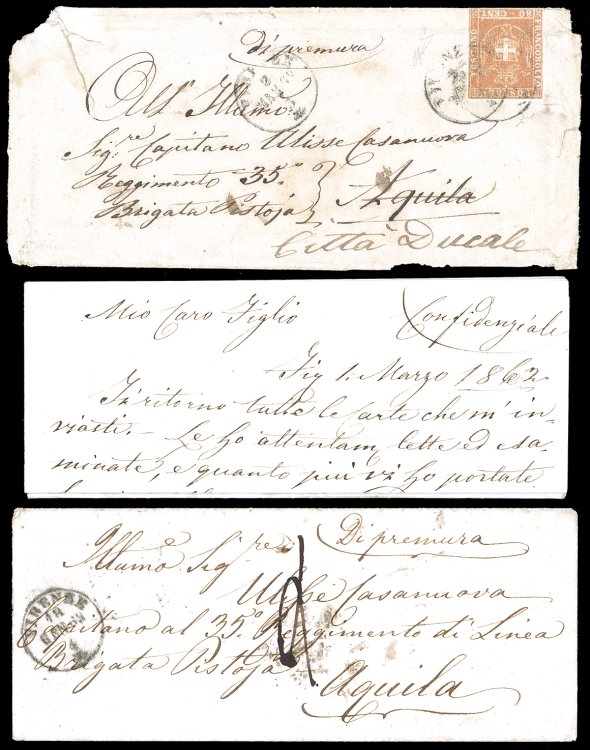 FRANCOBOLLO
80 CENT
Di premura
2
All' Illumo:
Sig.re Capitano Ulisse Casanuova
Reggimento 35.o
Aquila
Brigata Pistoja
Città Ducale
Mio Caro Figlio
Confidenziale
1. Marzo 1862
Ti ritorno tutte le carte che m'in-
viasti. - Le ho attentam. lette ed esa-
minate, e quanto più vi ho portate
Illumo Sig.re
Di premura
Ulisse Casanuova
FIRENZE
18
Capitano al 35.o Reggimento di Linea
Brigata Pistoja
Aquila